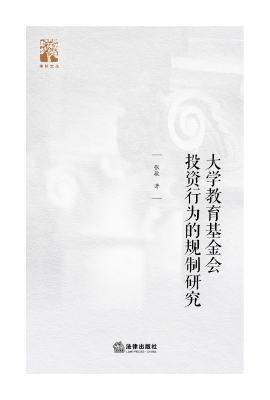 大学教育基金会
投资行为的规制研究
著
法律出版社
LAW PRESS·CHINA